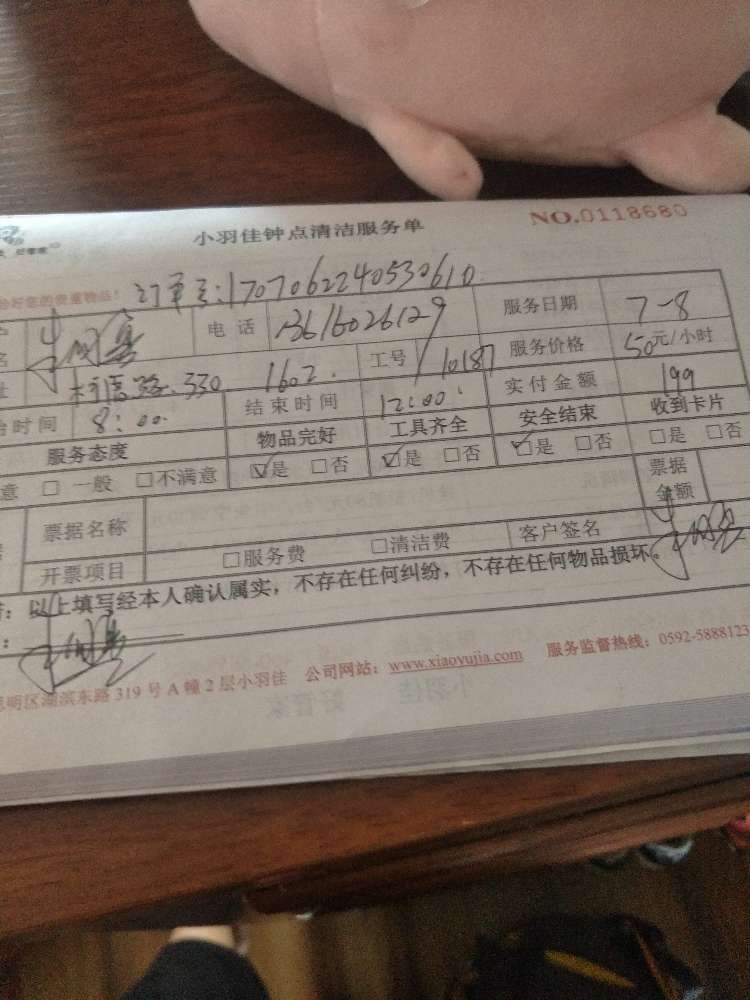 小羽佳钟点清洁服务单 NO.0118680
好您的贵重物品! 订单号:1707062240530610
电话 13616026129 服务日期 7-8
名
址 330 1602. 工号 10187 服务价格 50元/小时
时间 8:00 结束时间 12:00 实付金额 199
服务态度 物品完好 工具齐全 安全结束 收到卡片
意 □ 一般 □不满意 ☑是 □否 ☑是 □否 ☑是 □否 □是 □否
票据名称 票据金额
开票项目 □服务费 □清洁费 客户签名
: 以上填写经本人确认属实,不存在任何纠纷,不存在任何物品损坏。
:
明区湖滨东路319号A幢2层小羽佳 公司网站: www.xiaoyujia.com 服务监督热线: 0592-5888123